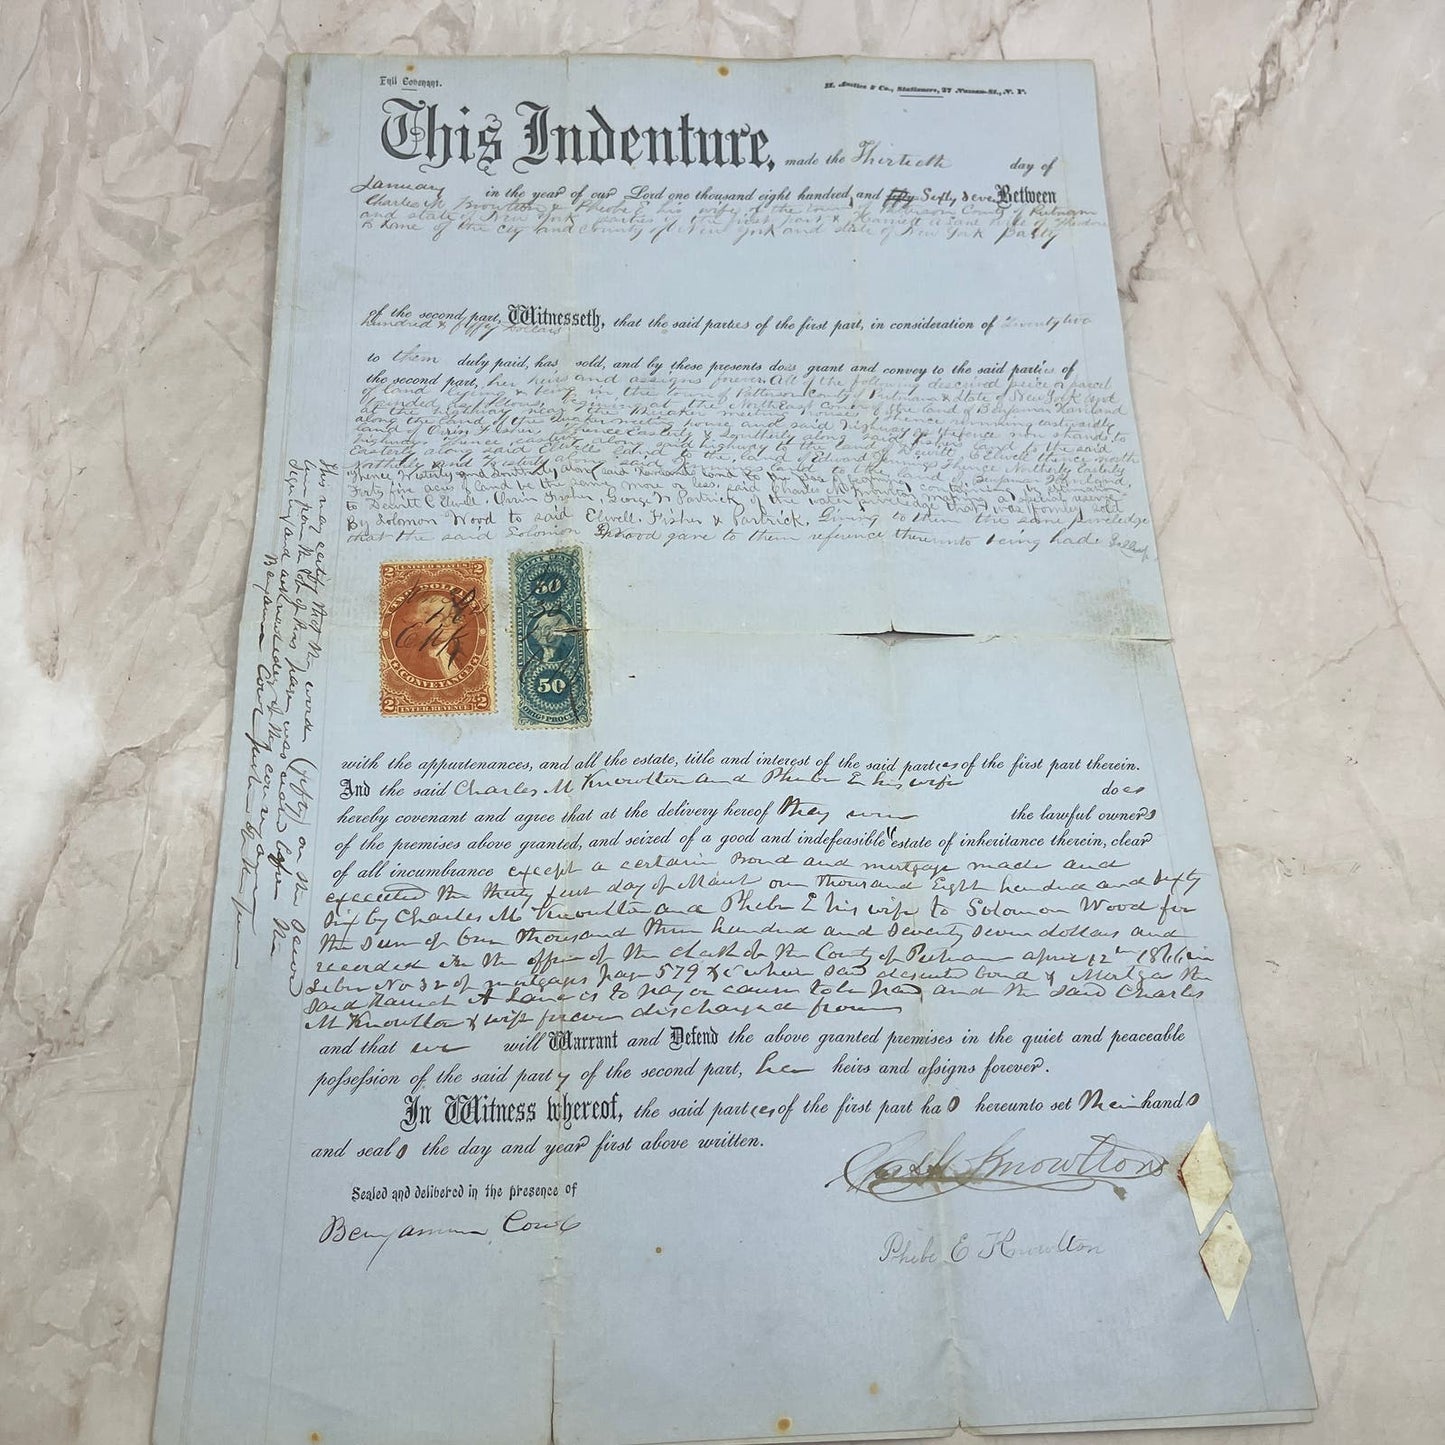 Full Covenant.
& Co., Stationers, 27 Nassau-St., N. Y.
This Indenture, made the Thirtieth day of
January in the year of our Lord one thousand eight hundred, and fifty Sixty Seven Between
Charles M Knowlton & Phebe E his wife of the Patterson County of Putnam
and state of New York parties of the first part & Harriett A Lane wife of Theodore
of the city and county of New York and state of New York party
of the second part, Witnesseth, that the said parties of the first part, in consideration of Twenty two
hundred & fifty Dollars
to them duly paid, has sold, and by these presents does grant and convey to the said parties of
the second part, her heirs and assigns forever. All of the following described peice or parcel
of land lying & being in the town of Patterson County of Putnam & State of New York
bounded as follows. Begining at the Northeast corner of the land of Benjamin Haviland
at the highway near the Quaker meeting house, thence running eastwardly
along the land of the Quaker meeting house and said highway to
land of Orrin Fisher, thence Easterly & Southerly along said fence
highway thence easterly along said highway to the land of
Easterly along said land to the land of Edward Dewitt C Elwell thence north
Northerly and Easterly along said land to the land of thence Northerly Easterly
thence Westerly and Southerly along said land to the place of begining containing
Forty five acres of land be the same more or less, said Charles M Knowlton making a
to Dewitt C Elwell, Orrin Fisher, George W Partrick, of the water priveledge that was formerly sold
By Solomon Wood to said Elwell, Fisher & Partrick, Giving to them the same priveledge
that the said Solomon Wood gave to them reference thereunto being had
UNITED STATES
TWO DOLLARS
CONVEYANCE
INTER. REVENUE
2
2
2
2
50
50
with the appurtenances, and all the estate, title and interest of the said parties of the first part therein.
And the said Charles M Knowlton and Phebe E his wife does
hereby covenant and agree that at the delivery hereof they were the lawful owners
of the premises above granted, and seized of a good and indefeasible estate of inheritance therein, clear
of all incumbrance except a certain Bond and mortgage made and
executed the thirty first day of March one thousand Eight hundred and Sixty
Six by Charles M Knowlton and Phebe E his wife to Solomon Wood for
the Sum of One thousand three hundred and Seventy Seven dollars and
recorded in the office of the clerk of the County of Putnam April 12th 1866 in
Liber No 32 of mortgages page 579 &c which said described bond & Mortgage the
said Harriet A Lane is to pay or cause to be paid and the said Charles
M Knowlton & wife forever discharged from
and that we will Warrant and Defend the above granted premises in the quiet and peaceable
possession of the said party of the second part, her heirs and assigns forever.
In Witness whereof, the said parties of the first part has hereunto set their hands
and seals the day and year first above written.
Sealed and delivered in the presence of
Benjamin Cowl
Chas M Knowlton
Phebe E Knowlton
This may certify that the words (fifty) on the Seven
line from the top of this page was
Signing and acknowledge of the
Benjamin Cowl